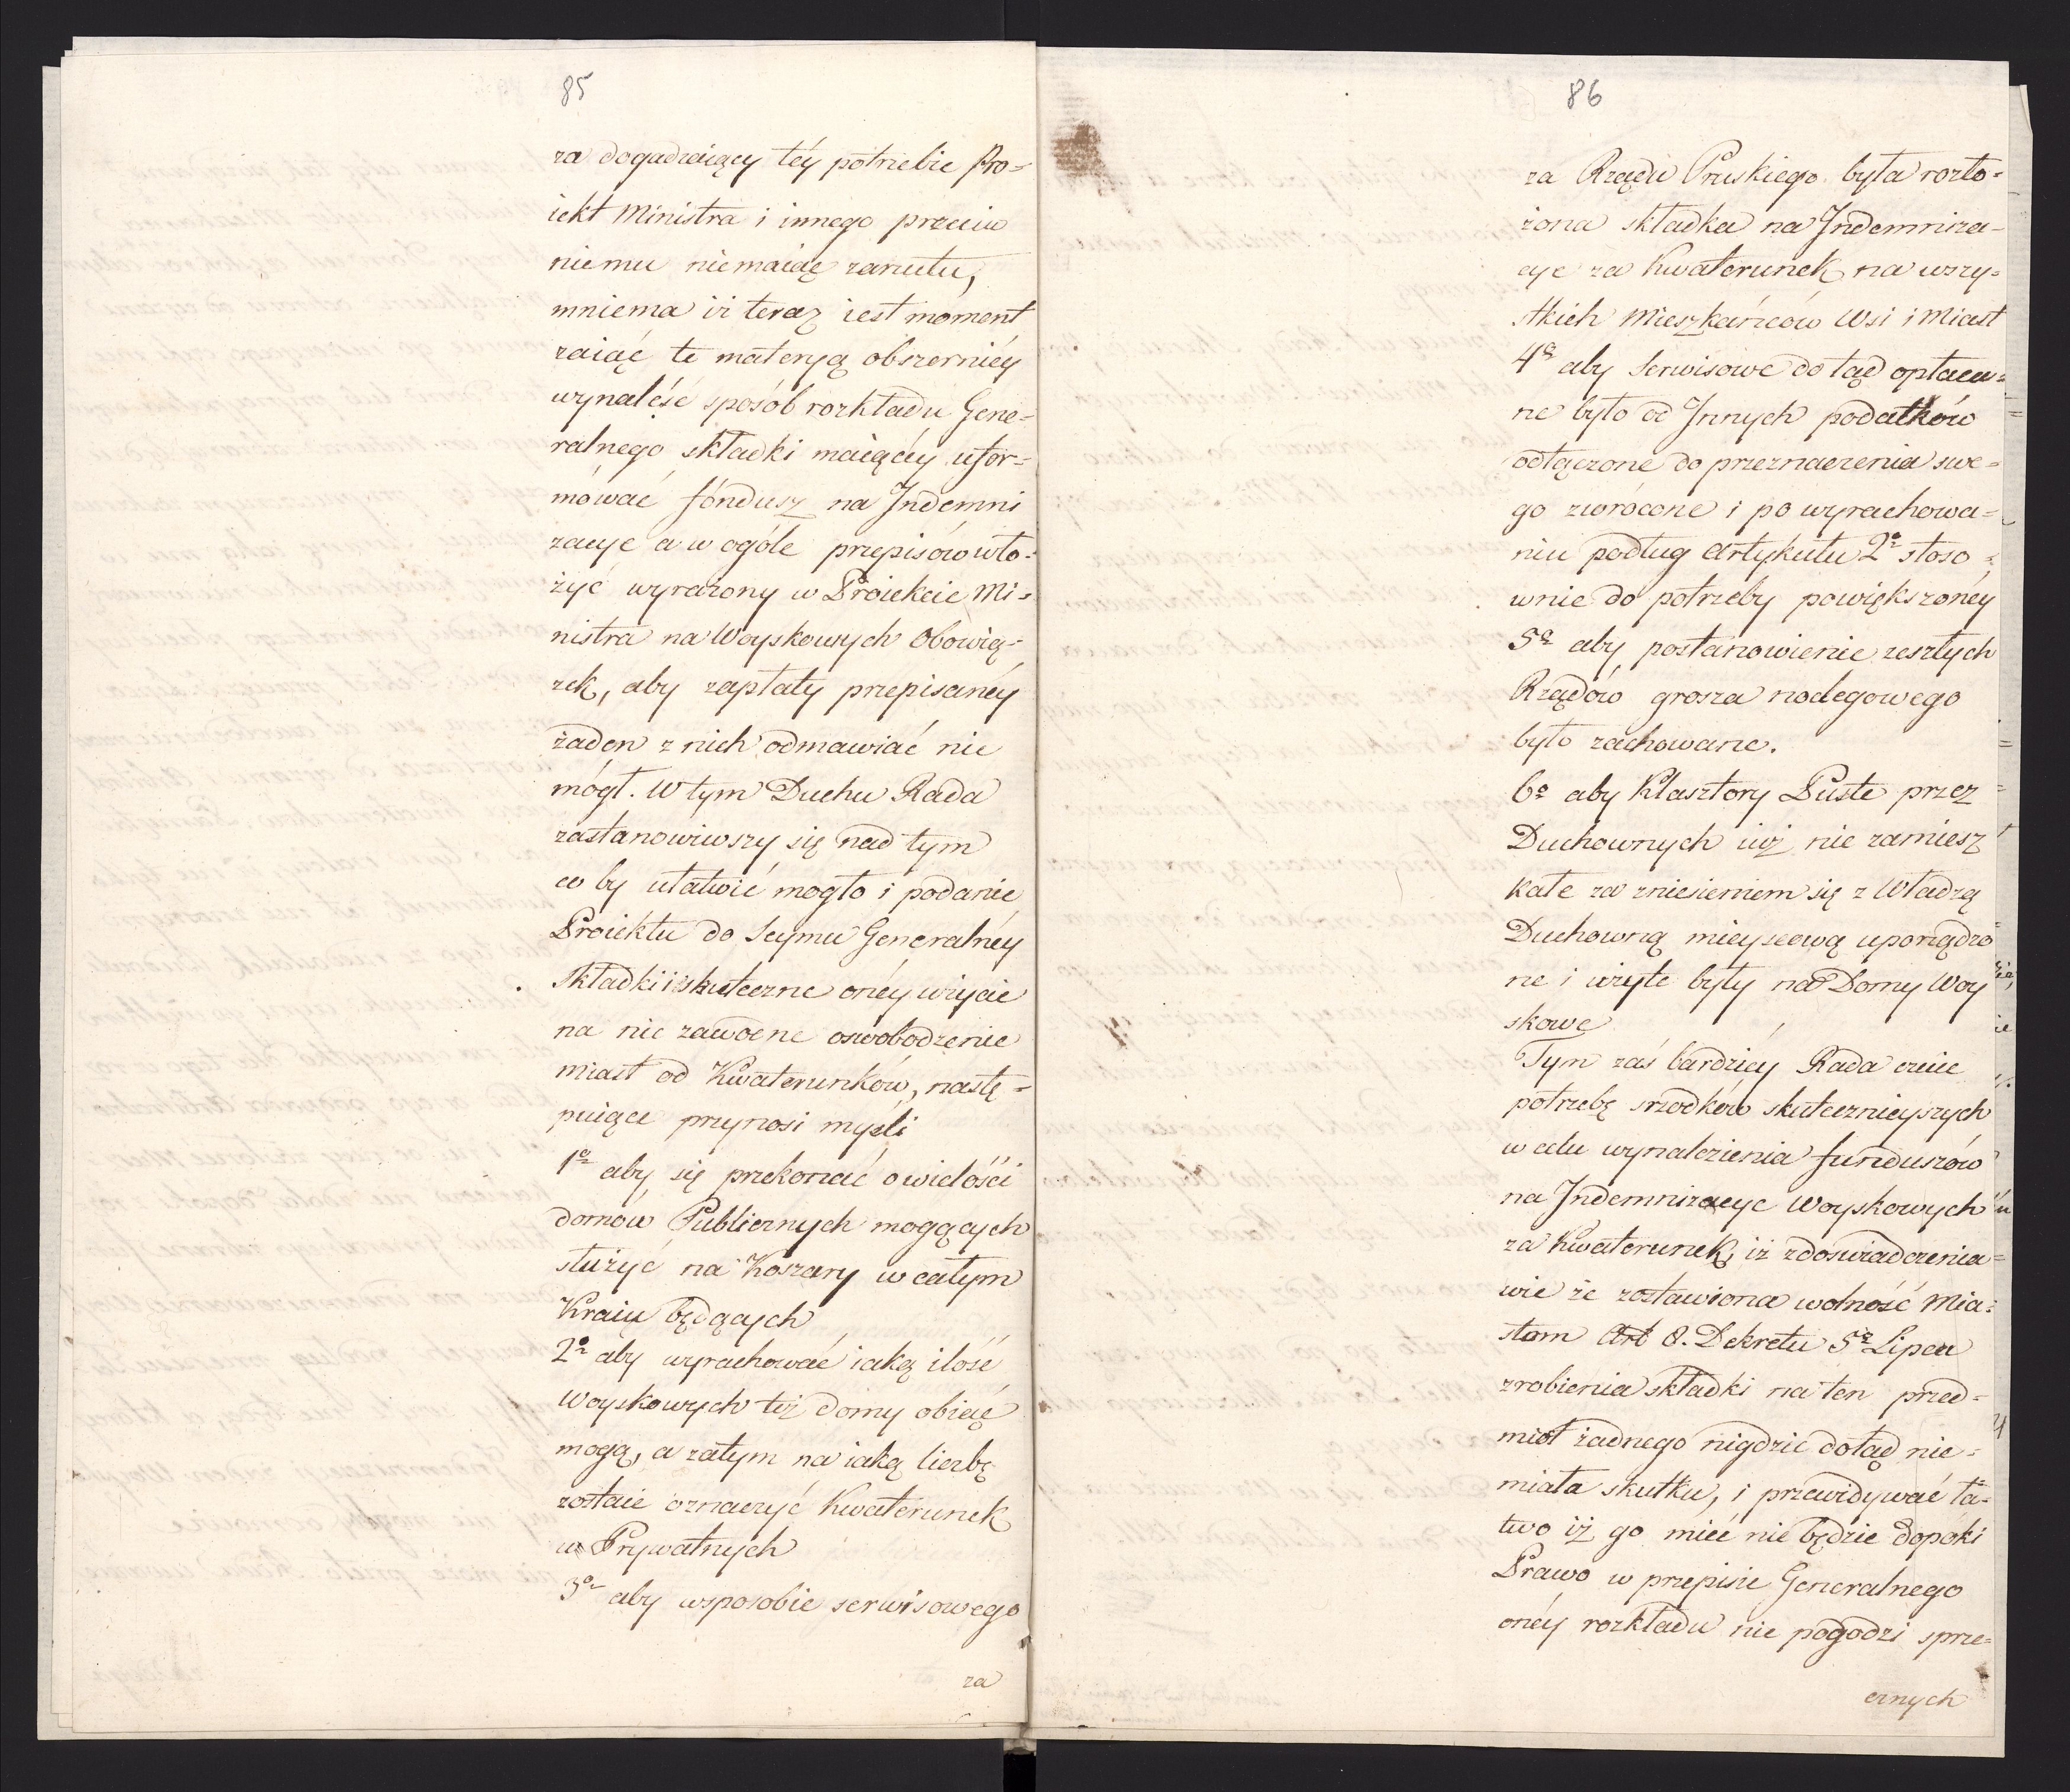 85
za dogadzaiący téy potrzebie Pro=
iekt Ministra i innego przeciw
niemu niemaiąc zarzutu,
mniema iż teraz iest moment
zaiąć tę materyą obszerniéy
wynaleść sposób rozkładu Gene=
ralnego składki maiącéy ufor=
mować fóndusz na Indemni
zacye a w ogóle przepisów wło=
żyć wyrażony w Proiekcie Mi=
nistra na Woyskowych Obowią=
zek, aby zapłaty przepisanéy
żaden z nich odmawiać nie
mógł. W tym Duchu Rada
zastanowiwszy się nad tym
co by ułatwić mogło i podanie
Proiektu do Seymu Generalnéy
składki i skuteczne onéy użycie
na nie zawodne oswobodzenie
miast od Kwaterunków, nastę=
puiące przynosi myśli
1º aby się przekonać o wielości
domów Publicznych mogących
służyć na Koszary w całym
Kraiu będących
2º aby wyrachować iaką ilość
Woyskowych też domy obiąć
mogą, a zatym na iaką liczbę
zostaie oznaczyć Kwaterunek
w Prywatnych
3º aby wsposobie serwisowego
za
86
za Rządu Pruskiego była rozło=
żona składka na Indemniza=
cye za Kwaterunek na wszy=
stkich Mieszkańców Wsi i Miast
4º aby Serwisowe do tąd opłaca=
ne było od Innych podatków
odłączone do przeznaczenia swe=
go zwrócone i po wyrachowa=
niu podług Artykułu 2º stoso=
wnie do potrzeby powiększonéy
5º aby postanowienie zeszłych
Rządów grosza noclegowego
było zachowane.
6º aby Klasztory Puste przez
Duchownych iuż nie zamiesz
kałe za zniesieniem się z Władzą
Duchowną mieyscową uporządzo
ne i użyte były na Domy Woy
skowe
Tym zaś bardziéy Rada czuie
potrzebę srzodków skutecznieyszych
w celu wynalezienia funduszów
na Indemnizacye Woyskowych
za Kwaterunek, iż zdoswiadczenia
wie że zostawiona wolność Mia=
stom Art 8. Dekretu 5º Lipca
zrobienia składki na ten przed=
miot żadnego nigdzie dotąd nie=
miała skutku, i przewidywać ła=
two iż go mieć nie będzie dopóki
Prawo w przepisie Generalnego
onéy rozkładu nie pogodzi sprze=
cznych